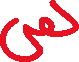 لمى